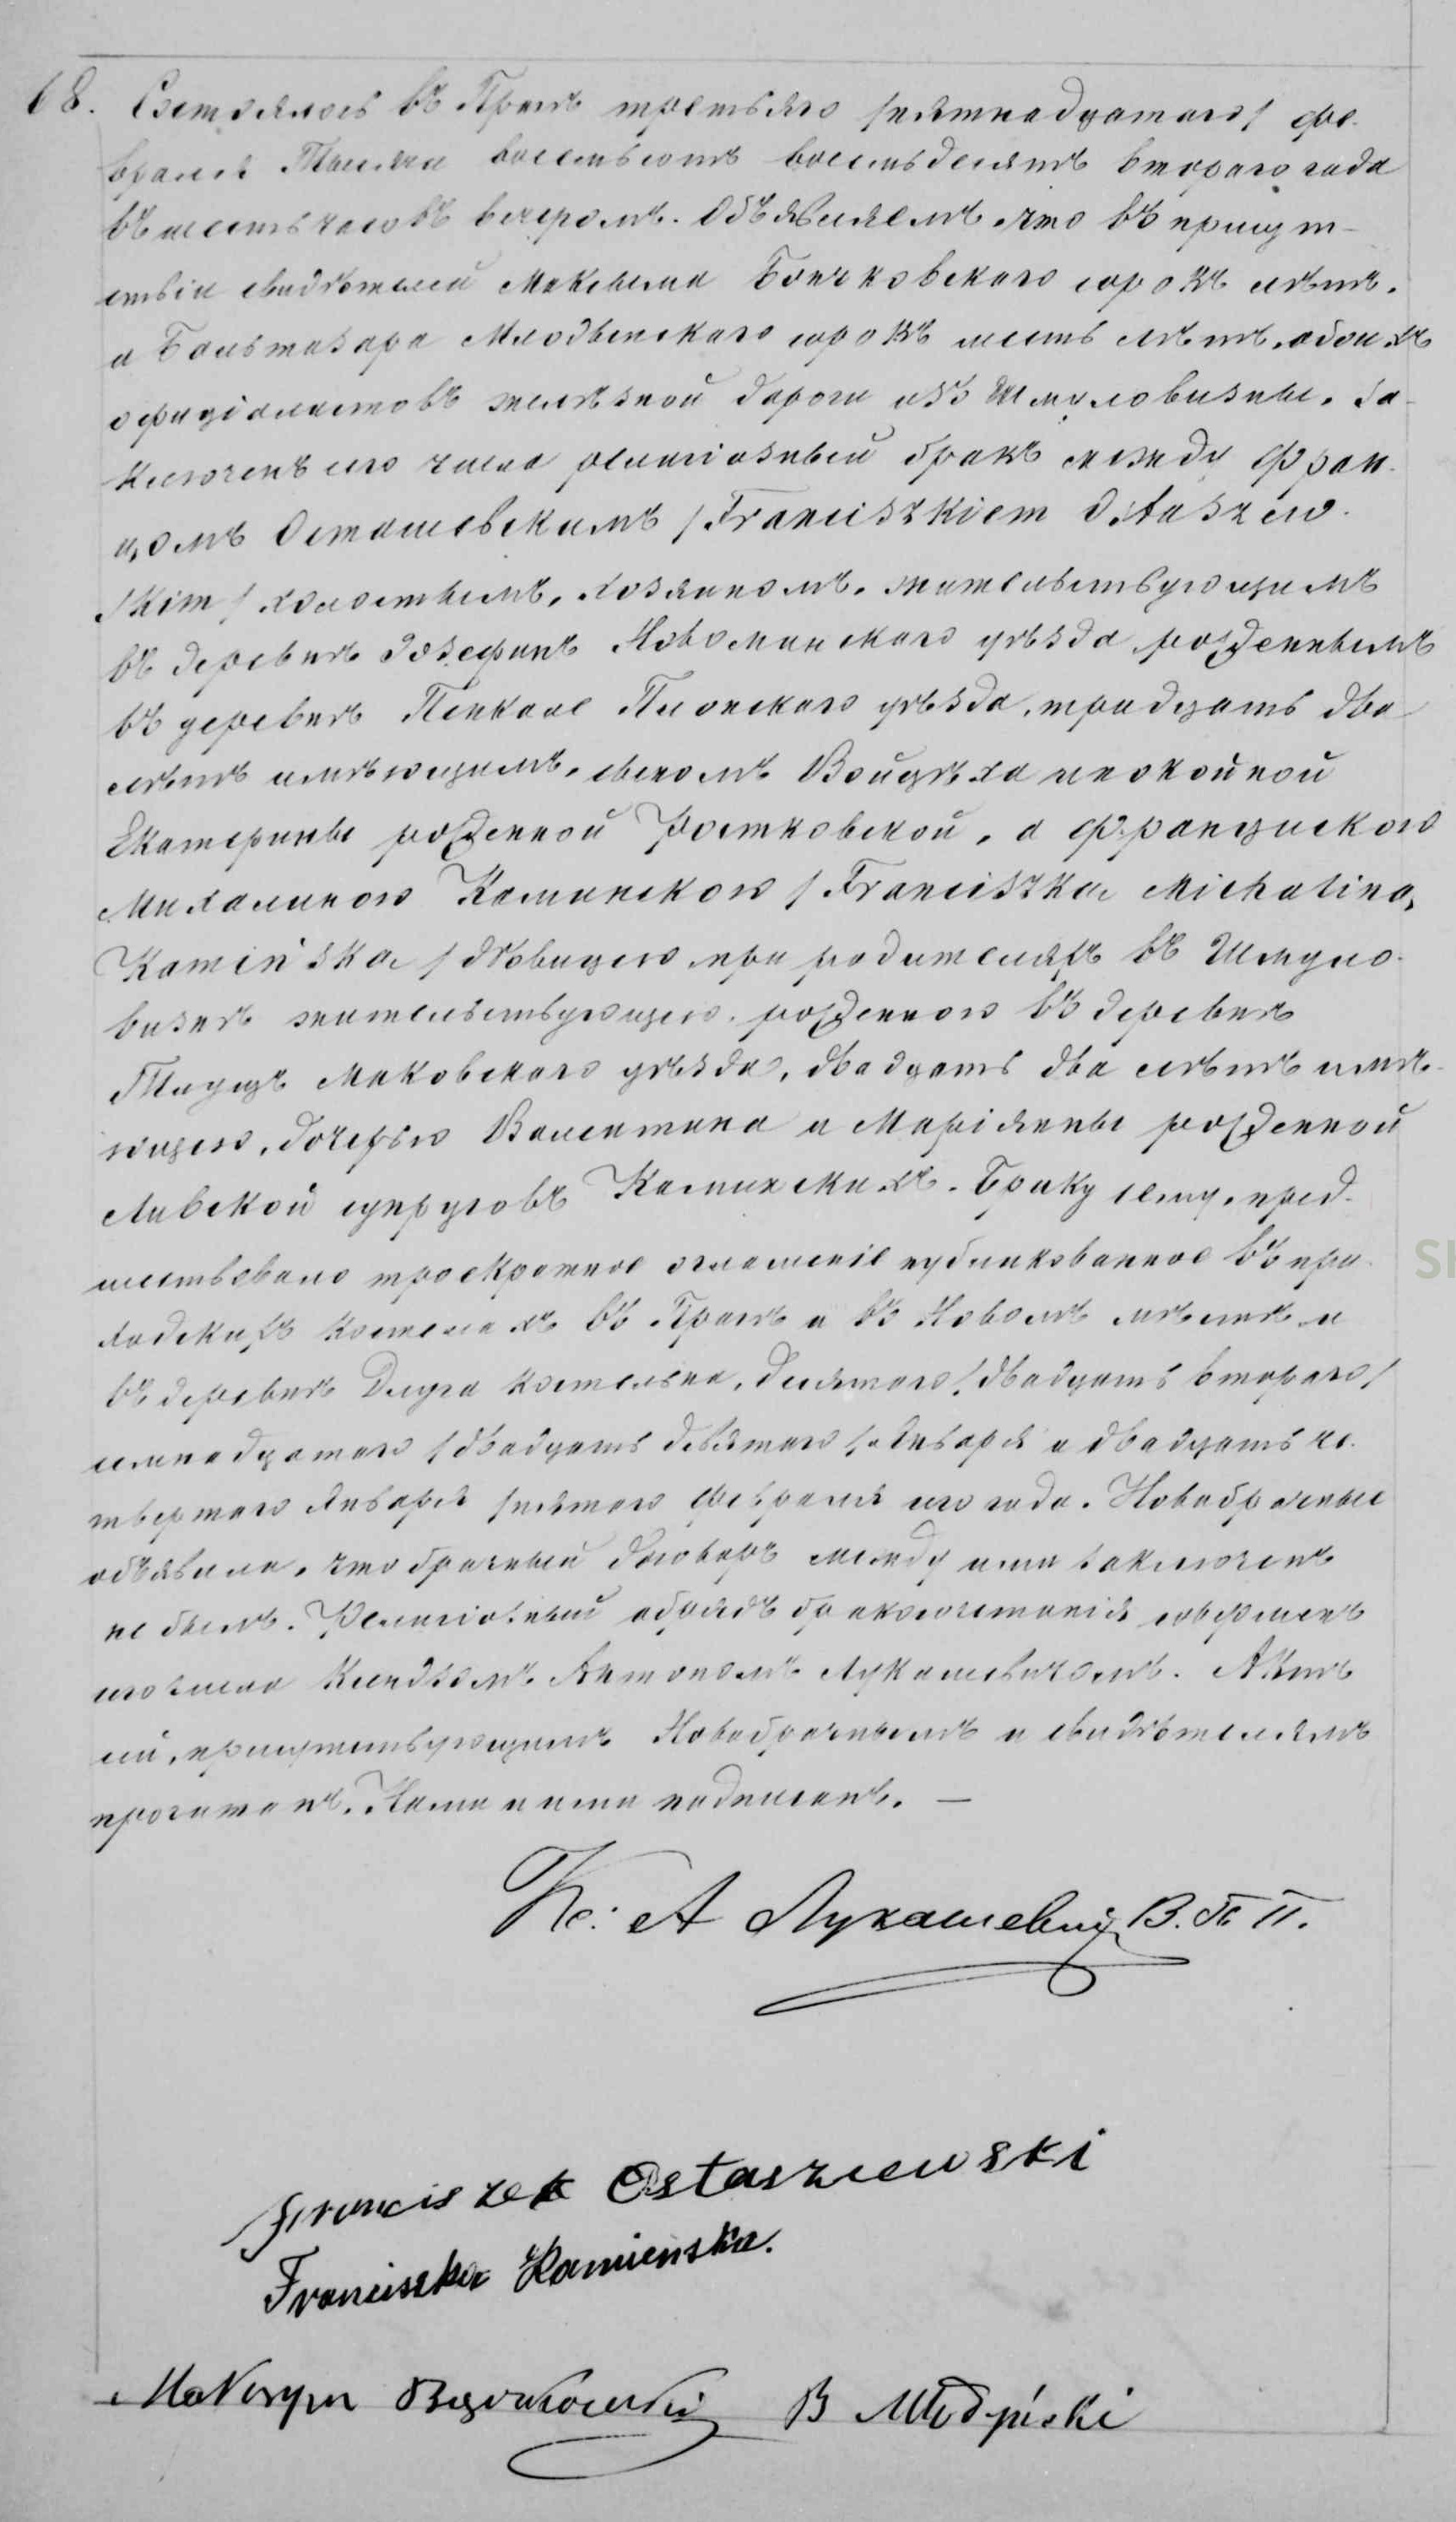 68. Состоялось въ Праге третьяго /пятнадцатаго/ фе-
враля Тысяча восемьсотъ восемьдесятъ втораго года
въ шесть часовъ вечеромъ. Объявляемъ что въ присут-
ствіи свидѣтелей Максыма Бончковскаго сорокъ лѣтъ,
и Бальтазара Млодзенскаго сорокъ шесть лѣтъ, обоихъ
официалистовъ желѣзной дороги изъ Шмуловизны, за-
ключенъ сего числа религіозный бракъ между Фран-
цомъ Осташевскимъ /Franciszkiem Ostaszew-
skim/ холостымъ, хозяиномъ, жительствующимъ
въ деревнѣ Юзефинѣ Новоминскаго уѣзда рожденнымъ
въ деревнѣ Плонскаго уѣзда, тридцать два
лѣтъ имѣющимъ, сыномъ Войцѣха и покойной
Екатерины рожденной Ростковской, а Францискою
Михалиною Каминскою /Franciszką Michaliną
Kamińską/ дѣвицею при родителяхъ въ Шмуло-
визнѣ жительствующею, рожденною въ деревнѣ
Маковскаго уѣзда, двадцать два лѣтъ имѣ-
ющею, дочерью Валентина и Маріянны рожденной
Ливской супруговъ Каминскихъ. Браку сему пред-
шествовало троекратное оглашеніе публикованное въ при-
ходскихъ костелахъ въ Прагѣ и въ Новомъ мѣстѣ и
въ деревнѣ Длуга костельна, десятаго /двадцать втораго/
семнадцатаго /двадцать девятаго/ Января и двадцать че-
твертаго Января /пятаго Февраля сего года. Новобрачные
объявили, что брачный договоръ между ими заключенъ
не былъ. Религіозный обрядъ бракосочетанія совершенъ
сего числа Ксендзомъ Антономъ Лукашевичомъ. Актъ
сей, присутствующимъ Новобрачнымъ и свидѣтелямъ
прочитанъ, Нами и ими подписанъ. —
Кс: А Лукашевичъ В. П. П.
Franciszek Ostaszewski
Franciszka Kamienska.
Maksym Bączkowski B Młodzińśki